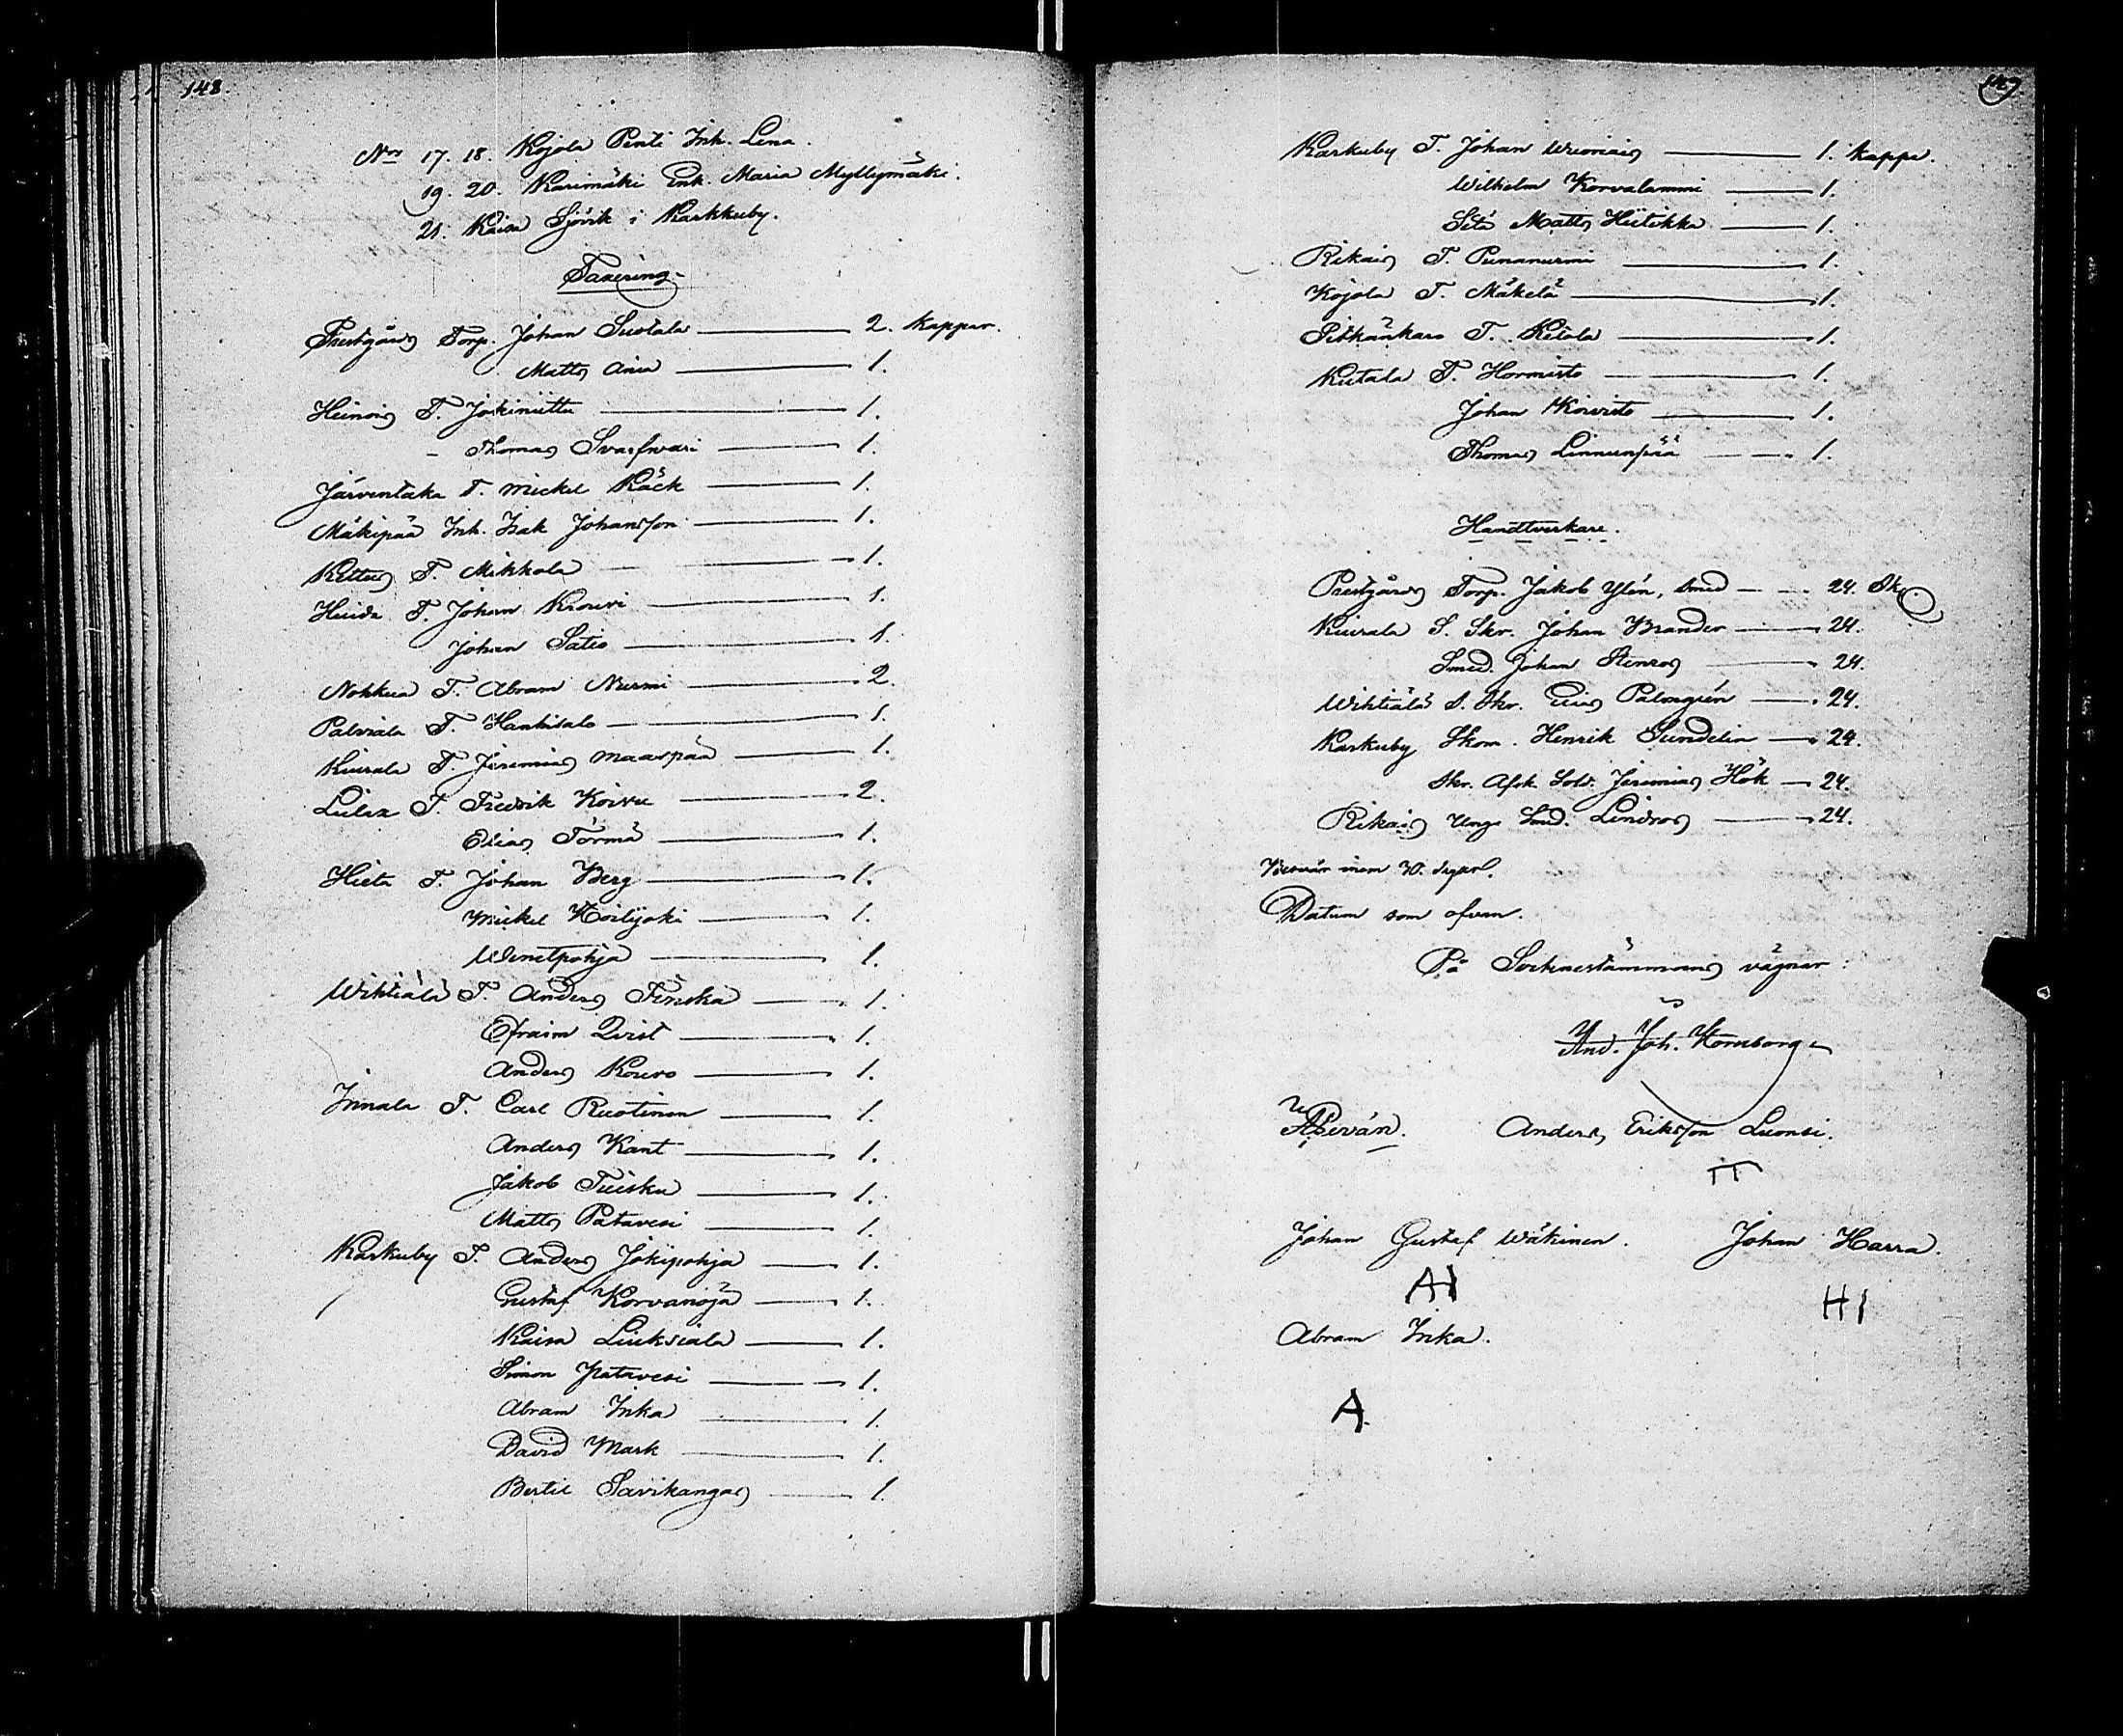 148.
Nrs 17. 18. Kojola Penti Inh. Lena.
19. 20. Karimäki Enk. Maria Myllymäki.
21. Kaisa Sjövik i Karkkuby.
Taxering.
Prestgårds Torp. Johan Suotala 2. Kappar.
Matts Ania 1.
Heinois T. Jokiniittu 1.
- Thomas Svarfvari 1.
Järventaka T. Mickel Räck 1.
Mäkipää Inh. Isak Johansson 1.
Kittus T. Mikkola 1.
Huida T. Johan Krouvi 1.
Johan Satio 1.
Nohkua T. Abram Nurmi 2.
Palviala T. Hankisalo 1.
Kiurala T. Jeremias Maaspää 1.
Lulax T. Fredrik Koivu 2.
Elias Törmä 1.
Hieta T. Johan Berg 1.
Mickel Koilijoki 1.
Wenetpohja 1.
Wihtiälä T. Anders Finska 1.
Efraim Qvist 1.
Anders Kouvo 1.
Innala T. Carl Ruotinen 1.
Anders Kant 1.
Jakob Tuisku 1.
Matts Patavesi 1.
Karkuby T. Anders Jokipohja 1.
Gustaf Korvanoja 1.
Kaisa Liuksiala 1.
Simon Patavesi 1.
Abram Inka 1.
David Mark 1.
Bertil Savikangas 1.
149
Karkuby T. Johan 1. Kappe.
Wilhelm Korvalammi 1.
Matts Hiitikka 1.
Rikais T. Punanurmi 1.
Kojola T. Mäkelä 1.
Pitkänkaro T. Kitola 1.
Kutala T. Hormisto 1.
Johan Koivisto 1.
Thomas Linnunpää 1.
Handtverkare.
Prestgårds Torp. Jakob Ylén, Smed 24. Sk.
Kiurala S. Skr. Johan Brander 24.
Smed. Johan Stenros 24.
Wihtiälä S. Skr. Elias Palmgrén 24.
Karkuby Skom. Henrik Sundelin 24.
Skr. Afsk. Sold. Jeremias Hök 24.
Rikais Unge Smd. Lindros 24.
Besvär inom 30. dagar.
Datum som ofvan.
På Sochnestämmans vägnar:
And. Joh. Kornborg
Anders Eriksson Luonsi.
TT
Johan Gustaf Wäkinen. Johan Harra.
AI HI
Abram Inka.
A